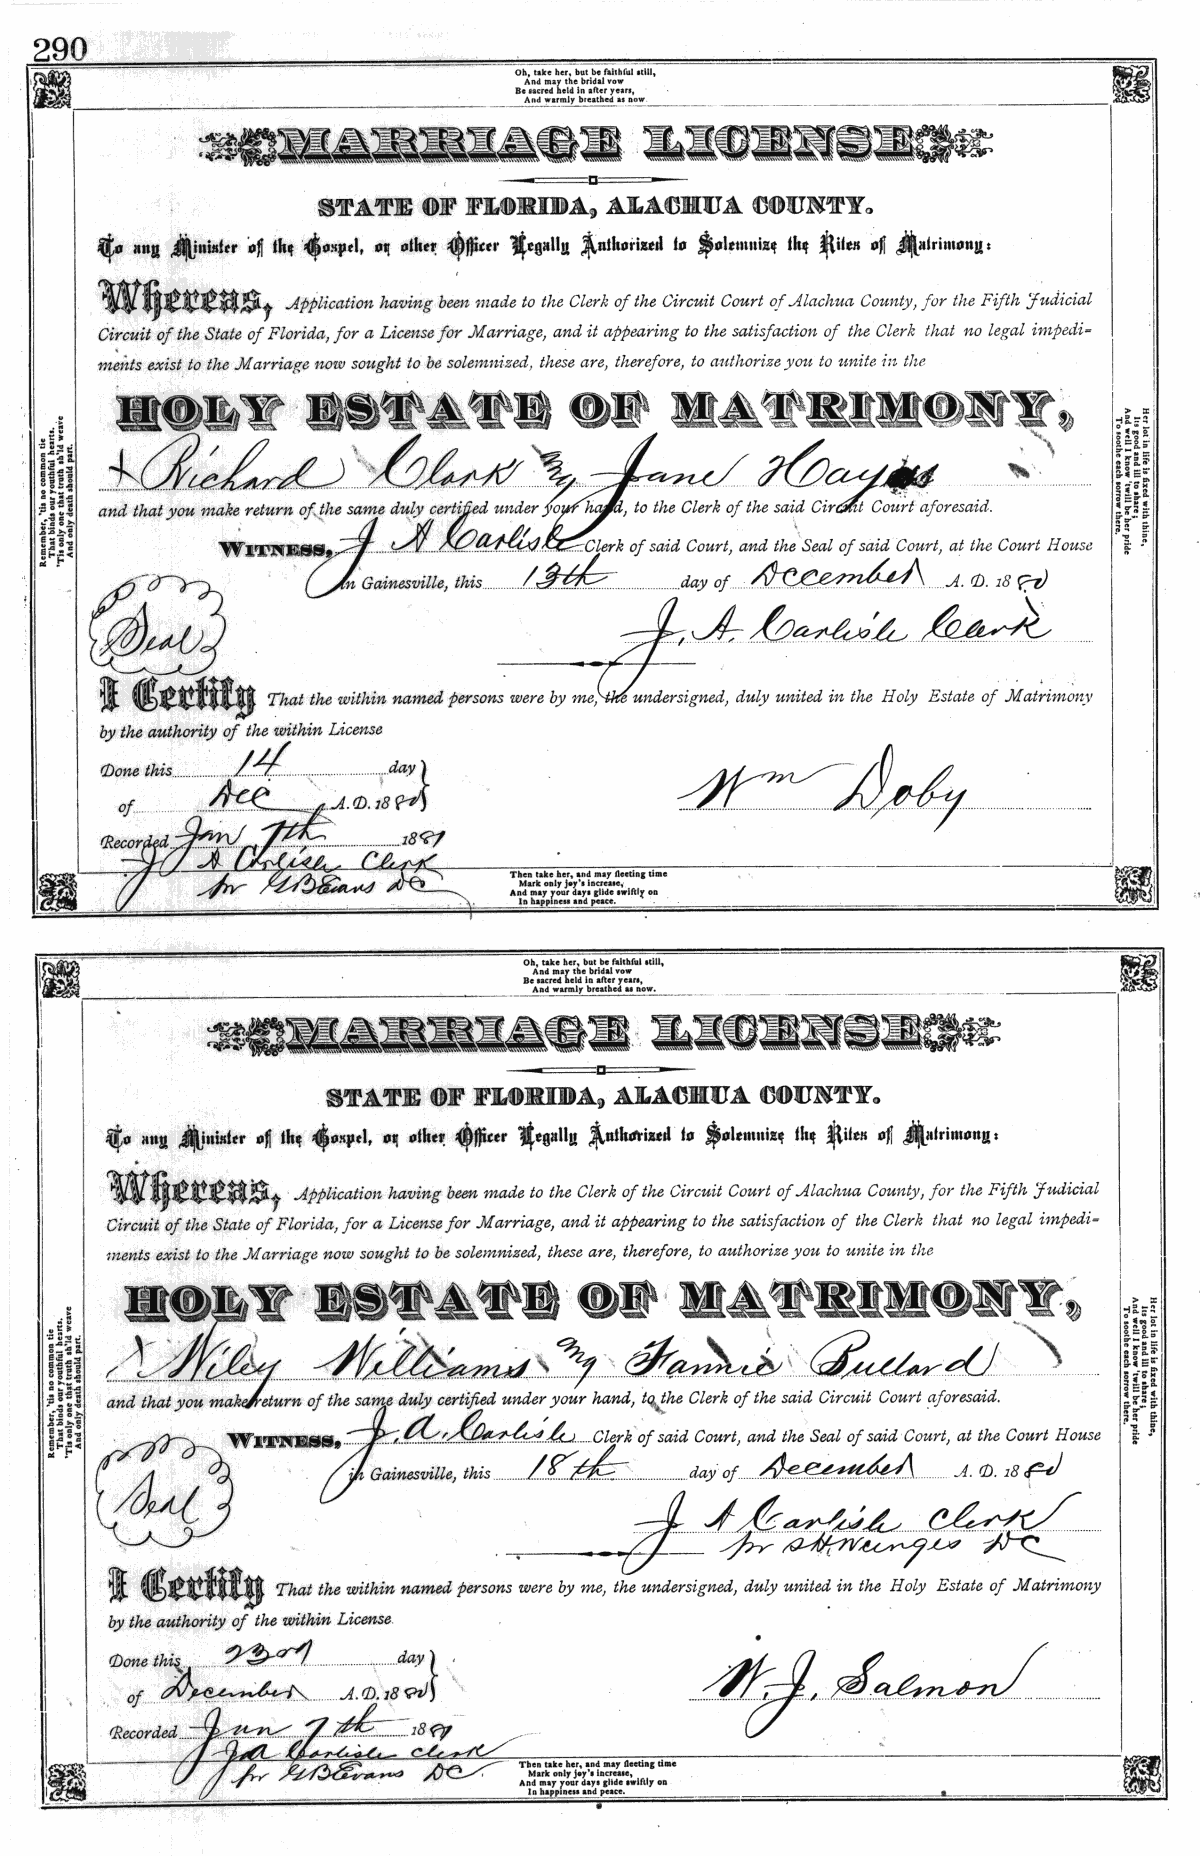 290
Oh, take her, but be faithful still,
And may the bridal vow
Be sacred held in after years,
And warmly breathed as now.
MARRIAGE LICENSE
STATE OF FLORIDA, ALACHUA COUNTY.
To any Minister of the Gospel, or other Officer Legally Authorized to Solemnize the Rites of Matrimony:
Whereas, Application having been made to the Clerk of the Circuit Court of Alachua County, for the Fifth Judicial
Circuit of the State of Florida, for a License for Marriage, and it appearing to the satisfaction of the Clerk that no legal impedi-
ments exist to the Marriage now sought to be solemnized, these are, therefore, to authorize you to unite in the
HOLY ESTATE OF MATRIMONY,
Richard Clark and Jane Hayes
and that you make return of the same duly certified under your hand, to the Clerk of the said Circuit Court aforesaid.
WITNESS, J A Carlisle Clerk of said Court, and the Seal of said Court, at the Court House
in Gainesville, this 13th day of December A. D. 1880
Seal
J. A. Carlisle Clerk
I Certify That the within named persons were by me, the undersigned, duly united in the Holy Estate of Matrimony
by the authority of the within License
Done this 14 day
of Dec A. D. 1880
Wm Doby
Recorded Jan 7th 1881
J A Carlisle Clerk
pr G B Evans DC
Remember, 'tis no common tie
That binds our youthful hearts.
'Tis only one that truth sh'ld weave
And only death should part.
Her lot in life is fixed with thine,
Its good and ill to share;
And well I know 'twill be her pride
To soothe each sorrow there.
Then take her, and may fleeting time
Mark only joy's increase,
And may your days glide swiftly on
In happiness and peace.
Oh, take her, but be faithful still,
And may the bridal vow
Be sacred held in after years,
And warmly breathed as now.
MARRIAGE LICENSE
STATE OF FLORIDA, ALACHUA COUNTY.
To any Minister of the Gospel, or other Officer Legally Authorized to Solemnize the Rites of Matrimony:
Whereas, Application having been made to the Clerk of the Circuit Court of Alachua County, for the Fifth Judicial
Circuit of the State of Florida, for a License for Marriage, and it appearing to the satisfaction of the Clerk that no legal impedi-
ments exist to the Marriage now sought to be solemnized, these are, therefore, to authorize you to unite in the
HOLY ESTATE OF MATRIMONY,
Wiley Williams and Fannie Bullard
and that you make return of the same duly certified under your hand, to the Clerk of the said Circuit Court aforesaid.
WITNESS, J. A. Carlisle Clerk of said Court, and the Seal of said Court, at the Court House
in Gainesville, this 18th day of December A. D. 1880
Seal
J A Carlisle Clerk
pr DC
I Certify That the within named persons were by me, the undersigned, duly united in the Holy Estate of Matrimony
by the authority of the within License.
Done this 23rd day
of December A. D. 1880
W. J. Salmon
Recorded Jan 7th 1881
J A Carlisle Clerk
pr G B Evans DC.
Remember, 'tis no common tie
That binds our youthful hearts.
'Tis only one that truth sh'ld weave
And only death should part.
Her lot in life is fixed with thine,
Its good and ill to share;
And well I know 'twill be her pride
To soothe each sorrow there.
Then take her, and may fleeting time
Mark only joy's increase,
And may your days glide swiftly on
In happiness and peace.